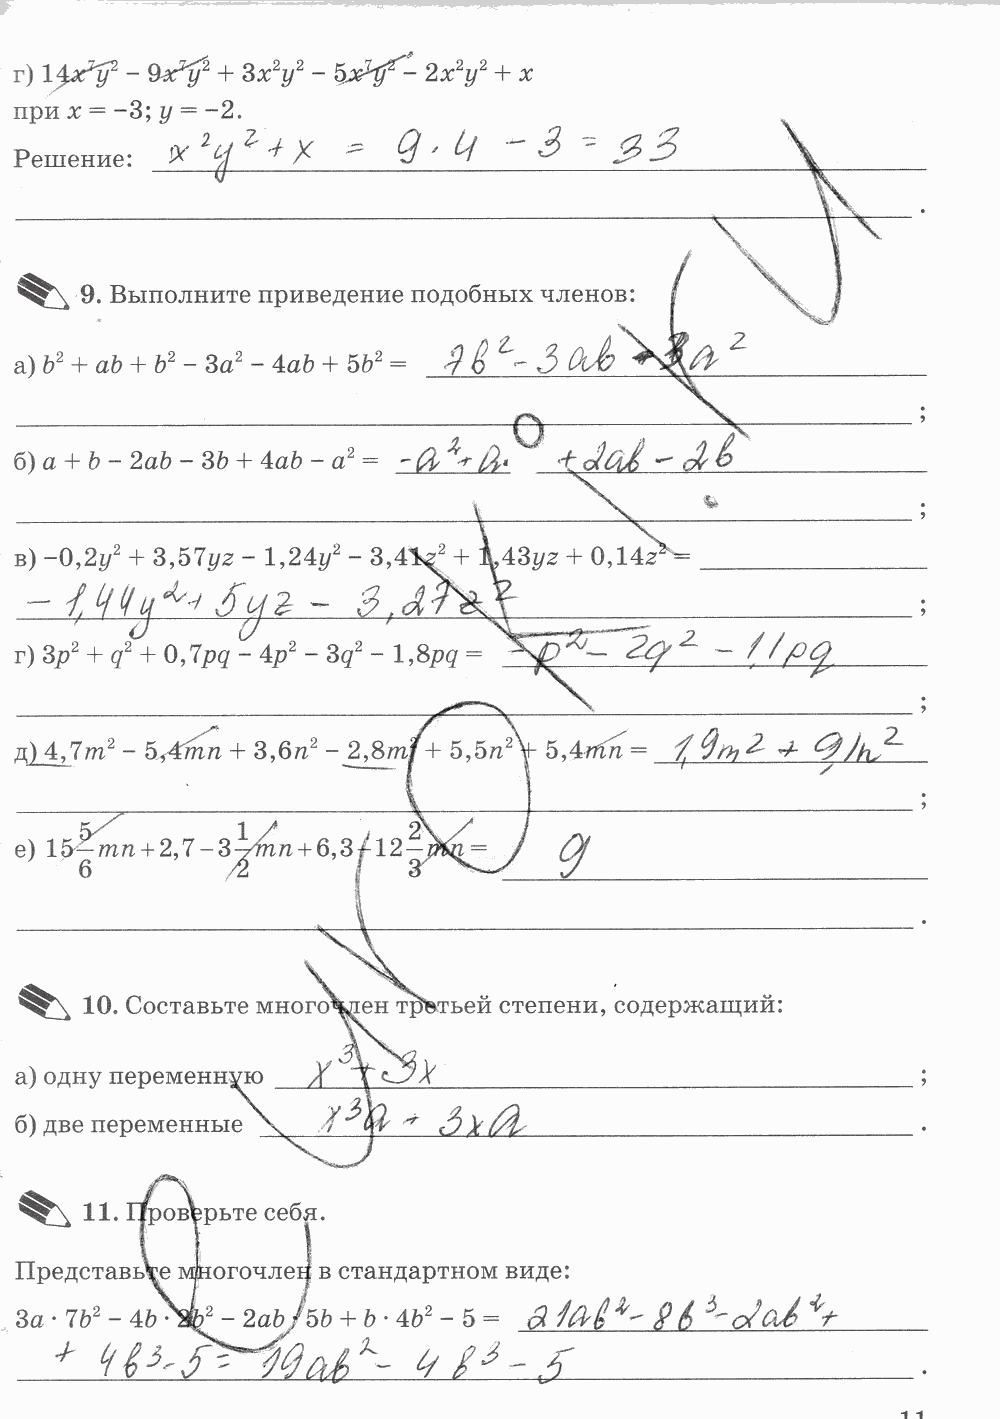 г) 14x⁷y² − 9x⁷y² + 3x²y² − 5x⁷y² − 2x²y² + x
при x = −3; y = −2.
Решение: x²y² + x = 9 · 4 − 3 = 33
.
9. Выполните приведение подобных членов:
а) b² + ab + b² − 3a² − 4ab + 5b² = 7b² − 3ab − 3a²
;
б) a + b − 2ab − 3b + 4ab − a² = −a² + a + 2ab − 2b
;
в) −0,2y² + 3,57yz − 1,24y² − 3,41z² + 1,43yz + 0,14z² =
− 1,44y² + 5yz − 3,27z² ;
г) 3p² + q² + 0,7pq − 4p² − 3q² − 1,8pq = −p² − 2q² − 1,1pq
;
д) 4,7m² − 5,4mn + 3,6n² − 2,8m² + 5,5n² + 5,4mn = 1,9m² + 9,1n²
;
е) 15 5/6 mn + 2,7 − 3 1/2 mn + 6,3 − 12 2/3 mn = 9
.
10. Составьте многочлен третьей степени, содержащий:
а) одну переменную x³ + 3x ;
б) две переменные x³a + 3xa .
11. Проверьте себя.
Представьте многочлен в стандартном виде:
3a · 7b² − 4b · 2b² − 2ab · 5b + b · 4b² − 5 = 21ab² − 8b³ − 2ab² +
+ 4b³ − 5 = 19ab² − 4b³ − 5 .
11